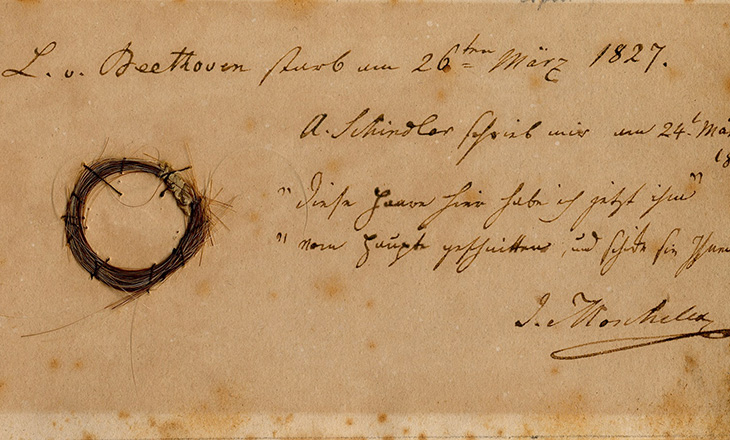 L. v. Beethoven starb am 26ten März 1827.
A. Schindler schrieb mir am 24t Mä
18
"Diese Haare hier habe ich jetzt ihm"
"vom Haupte geschnitten, und schicke sie Ihnen
I. Moscheles